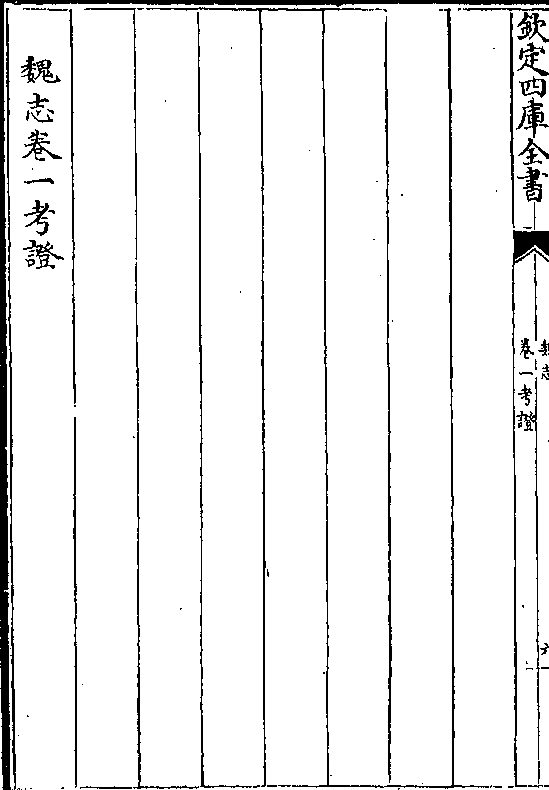 欽定四庫全書
魏志
卷一考證
六
魏志卷一考證